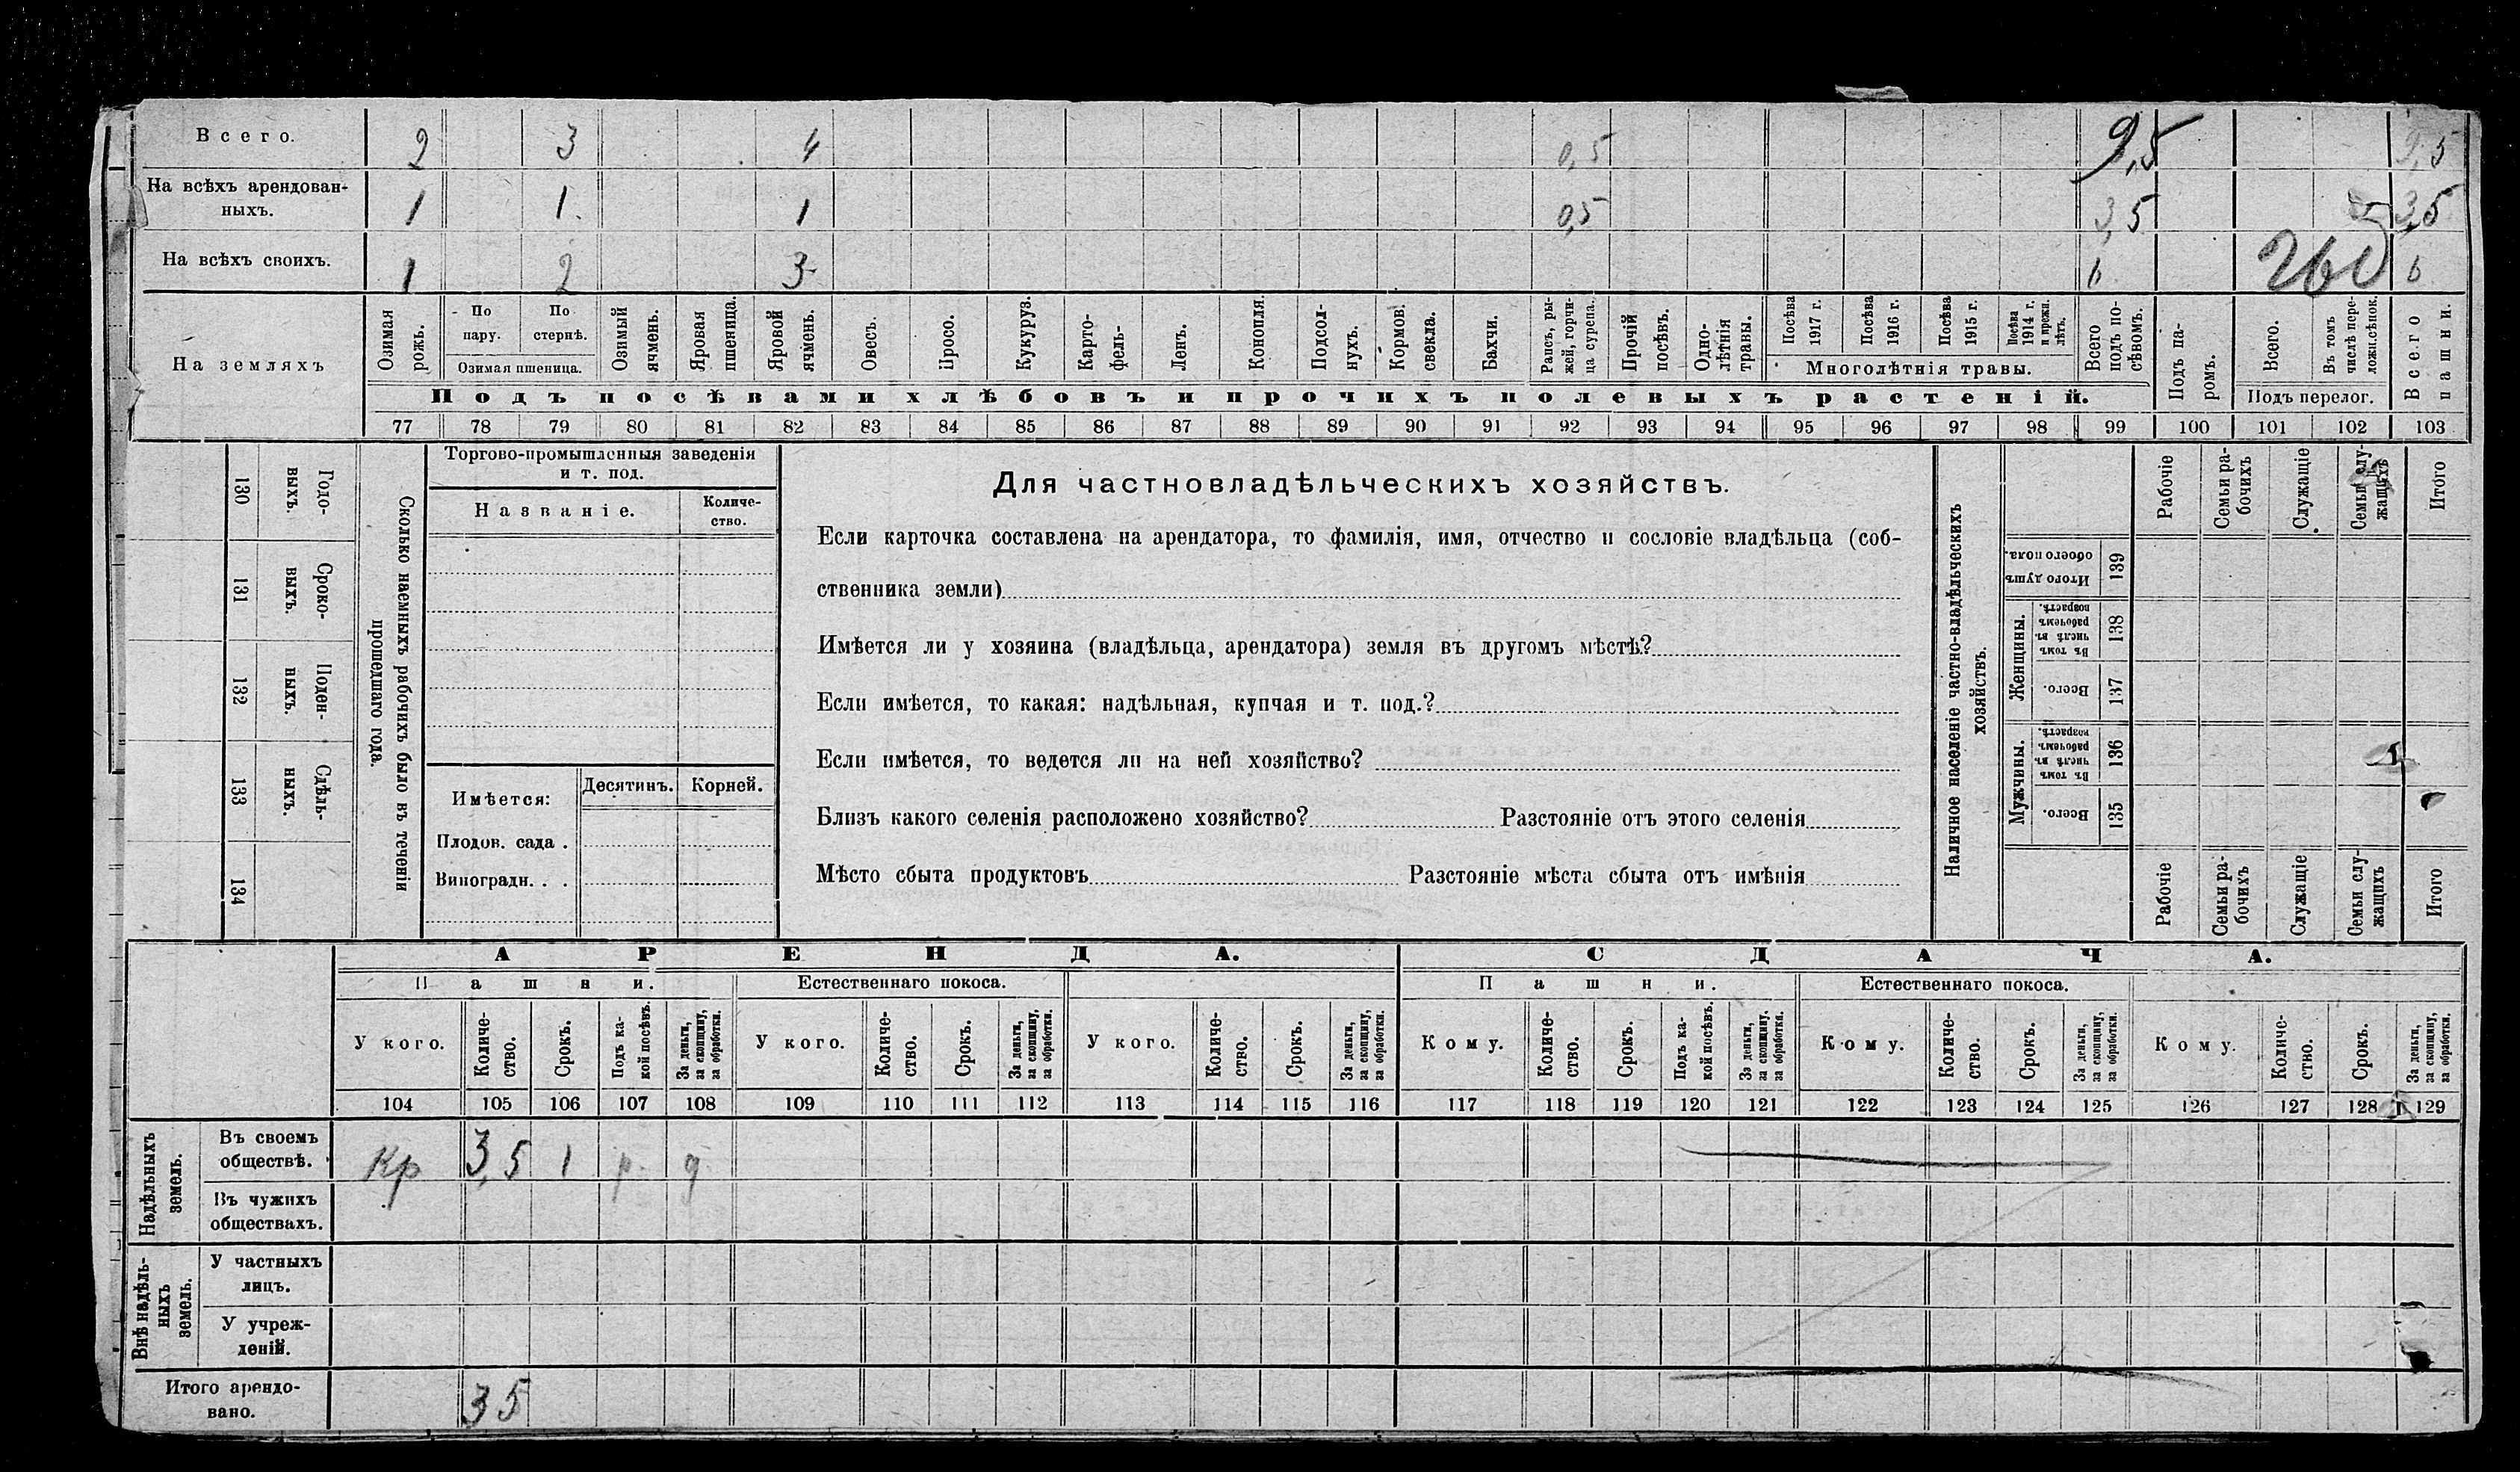 Всего. 2 3 4 0,5 9,5 9,5
На всѣхъ арендован-
ныхъ. 1 1 1 0,5 3,5 3,5
На всѣхъ своихъ. 1 2 3 6 260 6
На земляхъ
Озимая рожь.
По пару.
По стернѣ.
Озимая пшеница.
Озимый ячмень.
Яровая пшеница.
Яровой ячмень.
Овесъ.
Просо.
Кукуруз.
Карто-
фель-
Ленъ.
Конопля.
Подсол-
нухъ.
Кормов.
свекла.
Бахчи.
Рапсъ, ры-
жей, горчи-
ца сурепа.
Прочій посѣвъ.
Одно-
лѣтнія
травы.
Посѣва 1917 г.
Посѣва 1916 г.
Посѣва 1915 г.
Посѣва 1914 г. и прежн. лѣтъ.
Многолѣтнія травы.
Всего подъ по-
сѣвомъ.
Подъ па-
ромъ.
Всего.
Въ томъ числѣ пере-
ложн.сѣнок.
Подъ перелог.
Всего пашни.
Подъ посѣвами хлѣбовъ и прочихъ полевыхъ растеній.
77 78 79 80 81 82 83 84 85 86 87 88 89 90 91 92 93 94 95 96 97 98 99 100 101 102 103
Сколько наемныхъ рабочихъ было въ теченіи
прошедшаго года.
Годо-
выхъ.
130
Сроко-
выхъ.
131
Поден-
ныхъ.
132
Сдѣль-
ныхъ.
133
134
Торгово-промышленныя заведенія
и т. под.
Названіе.
Количе-
ство.
Имѣется:
Десятинъ. Корней.
Плодов. сада .
Виноградн. . .
Для частновладѣльческихъ хозяйствъ.
Если карточка составлена на арендатора, то фамилія, имя, отчество и сословіе владѣльца (соб-
ственника земли)
Имѣется ли у хозяина (владѣльца, арендатора) земля въ другомъ мѣстѣ?
Если имѣется, то какая: надѣльная, купчая и т. под.?
Если имѣется, то ведется ли на ней хозяйство?
Близъ какого селенія расположено хозяйство? Разстояніе отъ этого селенія
Мѣсто сбыта продуктовъ Разстояніе мѣста сбыта отъ имѣнія
Наличное населеніе частно-владѣльческихъ
хозяйствъ.
Рабочіе
Семьи ра-
бочихъ
Служащіе
Семьи слу-
жащихъ
Итого
Итого душъ
обоего пола.
139
Женщины.
Въ томъ числѣ въ рабочемъ возрастѣ.
138
Всего.
137
Мужчины.
Въ томъ числѣ въ рабочемъ возрастѣ.
136
Всего.
135
Рабочіе
Семьи ра-
бочихъ
Служащіе
Семьи слу-
жащихъ
Итого
АРЕНДА. СДАЧА.
Пашни. Естественнаго покоса. Пашни. Естественнаго покоса.
У кого.
Количе-
ство.
Срокъ.
Подъ ка-
кой посѣвъ.
За деньги,
за скопщину,
за обработки.
У кого.
Количе-
ство.
Срокъ.
За деньги,
за скопщину,
за обработки.
У кого.
Количе-
ство.
Срокъ.
За деньги,
за скопщину,
за обработки.
Кому.
Количе-
ство.
Срокъ.
Подъ ка-
кой посѣвъ.
За деньги,
за скопщину,
за обработки.
Кому.
Количе-
ство.
Срокъ.
За деньги,
за скопщину,
за обработки.
Кому.
Количе-
ство.
Срокъ.
За деньги,
за скопщину,
за обработки.
104 105 106 107 108 109 110 111 112 113 114 115 116 117 118 119 120 121 122 123 124 125 126 127 128 129
Надѣльныхъ
земель.
Въ своемъ
обществѣ. Кр 3,5 1 р. д
Въ чужихъ
обществахъ.
Внѣ надѣль-
ныхъ
земель.
У частныхъ
лицъ.
У учреж-
деній.
Итого арендо-
вано. 35